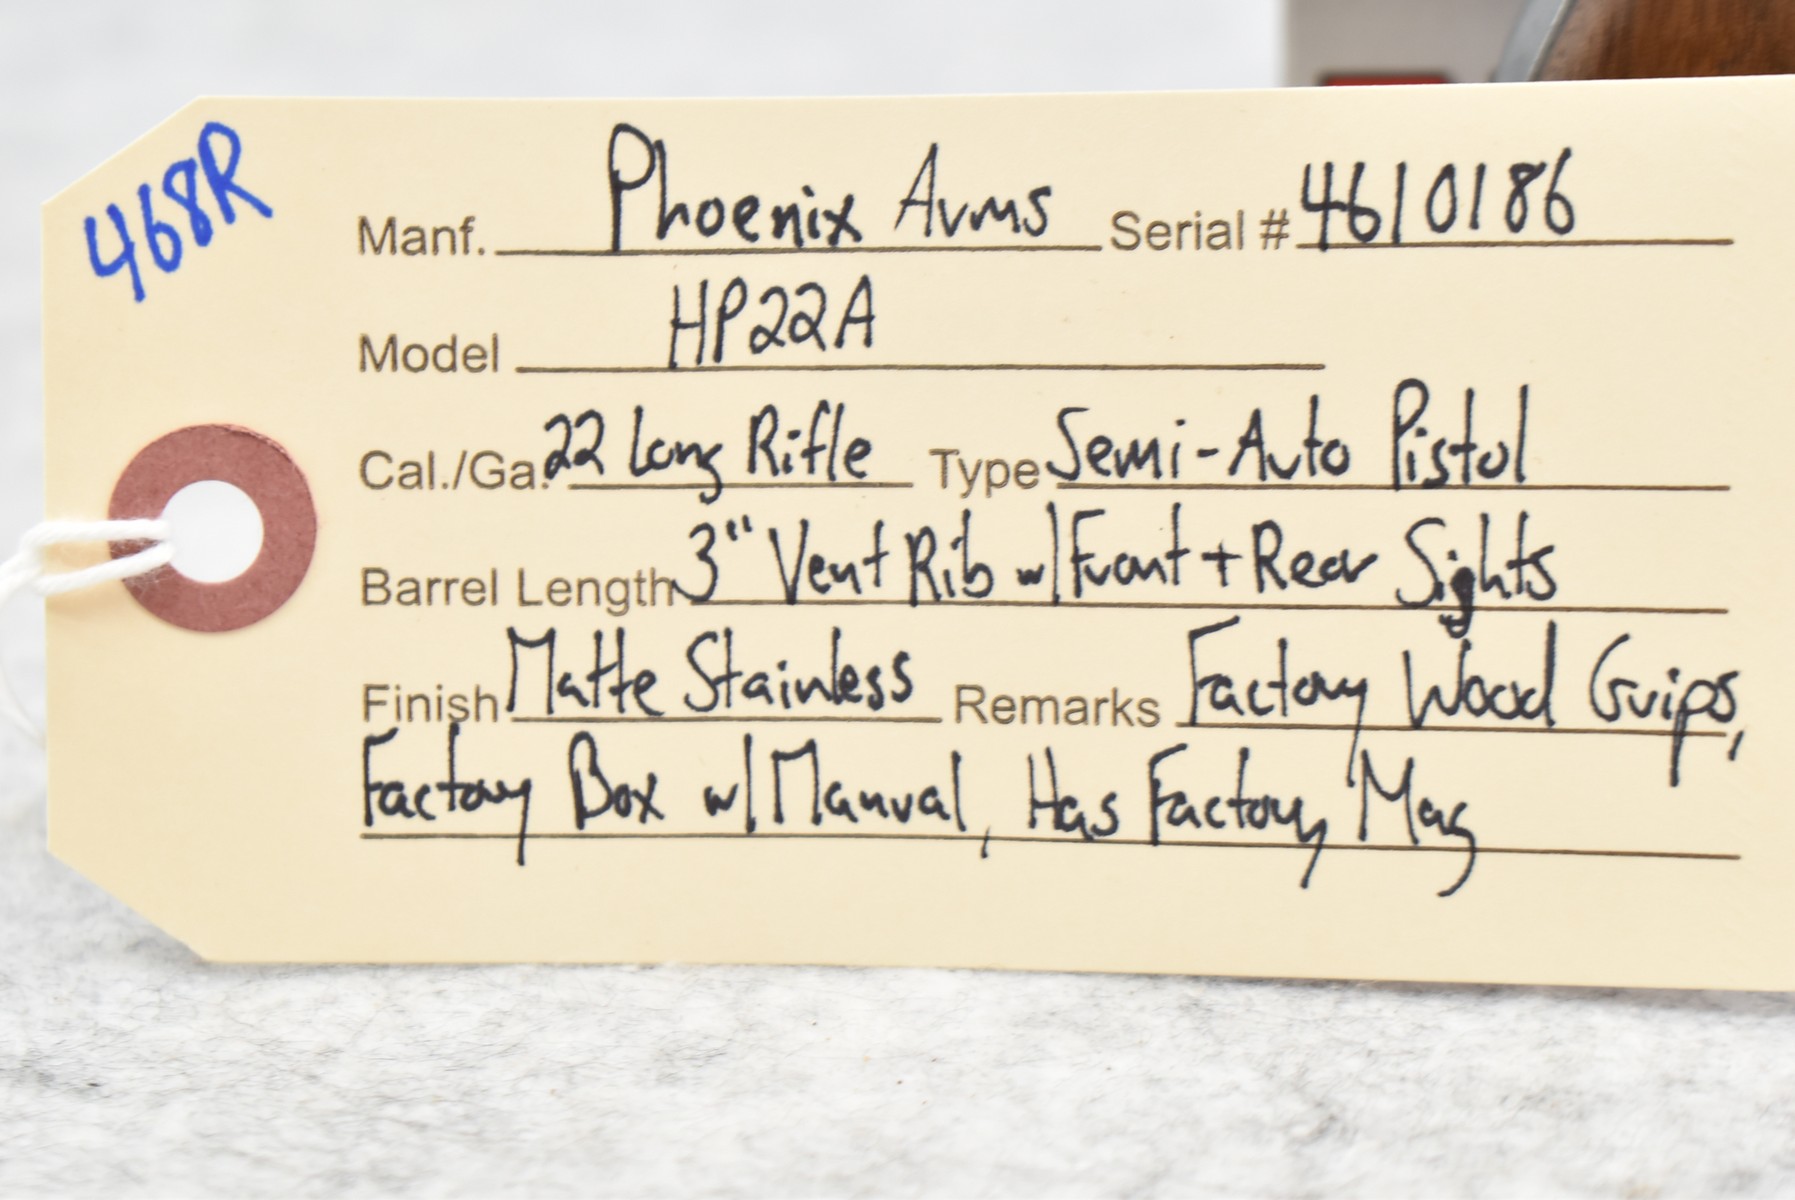 468R
Manf. Phoenix Arms Serial # 4610186
Model HP22A
Cal./Ga. 22 Long Rifle Type Semi-Auto Pistol
Barrel Length 3" Vent Rib w/Front + Rear Sights
Finish Matte Stainless Remarks Factory Wood Grips,
Factory Box w/Manual, Has Factory Mag